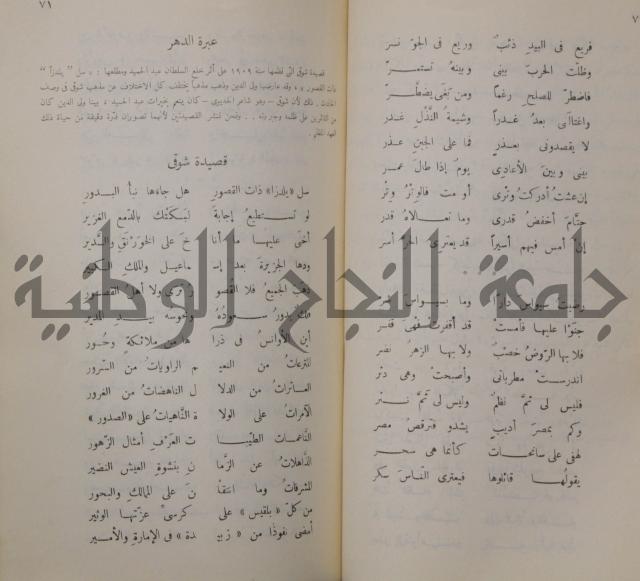 فريع فى البيد ذئب وريع فى الجو نسر
وظلت الحرب بينى وبينه تستمر
فاضطر للصلح رغما ومن تبغى يضطر
واغتالنى بعد غدرا وشيمة النذل غدر
لا يقصدونى بعذر فما على الجبن عذر
بينى وبين الأعادى يوم إذا طال عمر
إن عشت أدركت وترى أو مت فالوتر وتر
حتام أخفض قدرى وما تعالاه قدر
إن أمس فيهم أسيرا قد يعترى الحر أسر
رضيت سيواس دارا وما بسيواس
جنوا عليها فأمست قد أقفرت فهى قفر
فلا بها الروض خصب ولا بها الزهر نضر
اندرست مطرباتى وأصبحت وهى دثر
فليس لى ثم نظم وليس لى ثم نثر
وكم بمصر أديب يشدو فترقص مصر
لهفى على سانحات كأنما هى سحر
يقولها قائلوها فيعترى الناس سكر
٧١
عبرة الدهر
قصيدة شوقى التى نظمها سنة ١٩٠٩ على أثر خلع السلطان عبد الحميد ومطلعها : « سل « يلدزا »
ذات القصور » ، وقد عارضها ولى الدين وذهب مذهبا يختلف كل الاختلاف عن مذهب شوقى فى وصف
الحادث . ذلك لأن شوقى – وهو شاعر الخديوى – كان ينعم بخيرات عبد الحميد ، بينا ولى الدين كان
من الثائرين على ظلمه وجبروته . ونحن ننشر القصيدتين لأنهما تصوران فترة دقيقة من حياة ذلك
العهد المظلم .
قصيدة شوقى
سل « يلدزا » ذات القصور هل جاءها نبأ البدور
لو تستطيع إجابة لبكتك بالدمع الغزير
أخنى عليها ما أنا خ على الخورنق والسدير
ودها الجزيرة بعد إسـ ـماعيل والملك الكبير
ذهب الجميع فلا القصو ر ترى ولا أهل القصور
فلك يدور سعوده ونحوسه بيد المدير
أين الأوانس فى ذرا ها من ملائكة وحور
المترعات من النعيـ ـم الراويات من السرور
العاثرات من الدلا ل الناهضات من الغرور
الآمرات على الولا ة الناهيات على « الصدور »
الناعمات الطيبا ت العرف أمثال الزهور
الذاهلات عن الزما ن بنشوة العيش النضير
المشرفات وما انتقلـ ـن على الممالك والبحور
من كل « بلقيس » على كرسى عزتها الوثير
أمضى نفوذا من « زبيـ ـدة » فى الإمارة والأمير
جامعة النجاح الوطنية